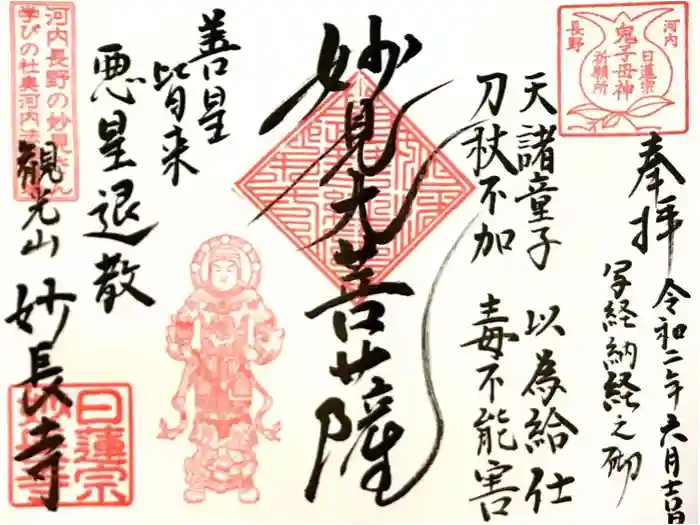 河内
長野
鬼子母神
日蓮宗
祈願所
奉拝
令和二年六月吉日
写経納経之砌
天諸童子 以為給仕
刀杖不加 毒不能害
妙見大菩薩
善星
皆来
悪星退散
河内長野の妙見さん
学びの杜奥河内
観光山
妙長寺
日蓮宗